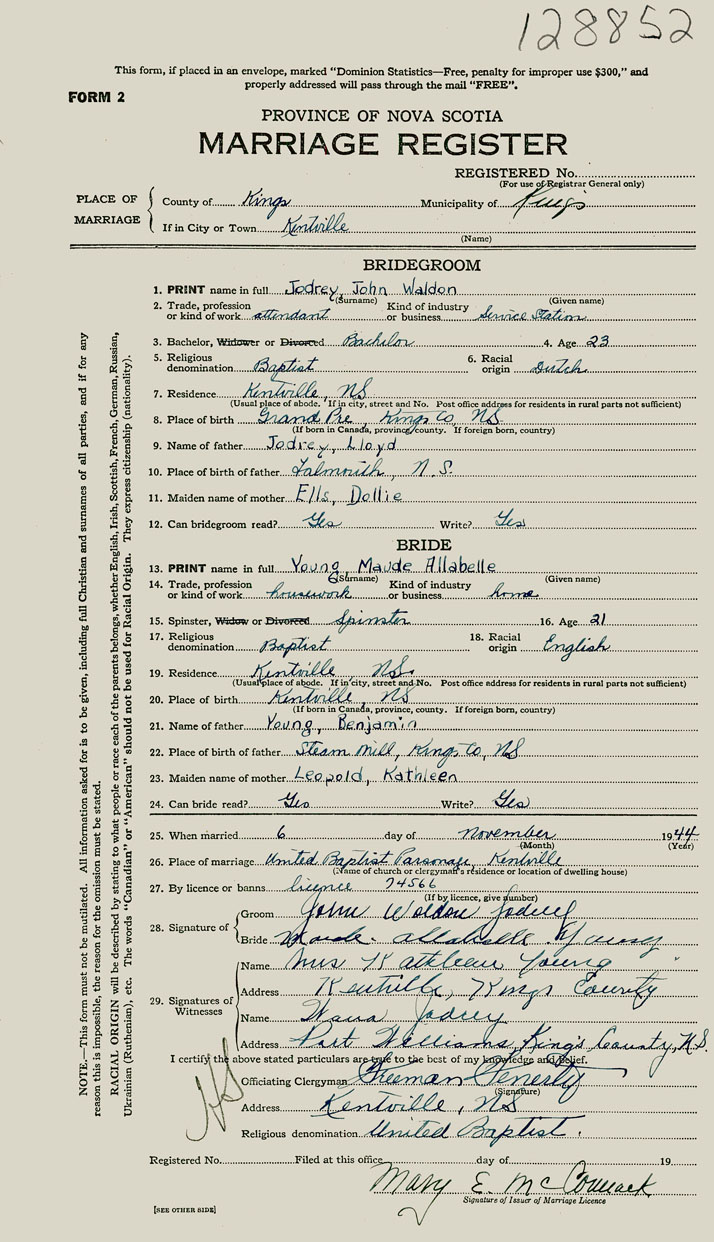 128852
This form, if placed in an envelope, marked "Dominion Statistics—Free, penalty for improper use $300," and
properly addressed will pass through the mail "FREE".
FORM 2
PROVINCE OF NOVA SCOTIA
MARRIAGE REGISTER
REGISTERED No.
(For use of Registrar General only)
PLACE OF MARRIAGE
County of Kings Municipality of Kings
If in City or Town Kentville
(Name)
BRIDEGROOM
1. PRINT name in full Jodrey, John Waldon
(Surname) (Given name)
2. Trade, profession or kind of work attendant Kind of industry or business Service Station
3. Bachelor, Widower or Divorced Bachelor 4. Age 23
5. Religious denomination Baptist 6. Racial origin Dutch
7. Residence Kentville, NS
(Usual place of abode. If in city, street and No. Post office address for residents in rural parts not sufficient)
8. Place of birth Grand Pre, Kings Co, NS
(If born in Canada, province, county. If foreign born, country)
9. Name of father Jodrey, Lloyd
10. Place of birth of father Falmouth, N.S.
11. Maiden name of mother Ells, Dollie
12. Can bridegroom read? Yes Write? Yes
BRIDE
13. PRINT name in full Young, Maude Allabelle
(Surname) (Given name)
14. Trade, profession or kind of work housework Kind of industry or business home
15. Spinster, Widow or Divorced Spinster 16. Age 21
17. Religious denomination Baptist 18. Racial origin English
19. Residence Kentville NS.
(Usual place of abode. If in city, street and No. Post office address for residents in rural parts not sufficient)
20. Place of birth Kentville, NS
(If born in Canada, province, county. If foreign born, country)
21. Name of father Young, Benjamin
22. Place of birth of father Steam Mill, Kings Co, NS
23. Maiden name of mother Leopold, Kathleen
24. Can bride read? Yes Write? Yes
25. When married 6 day of November 1944
(Month) (Year)
26. Place of marriage United Baptist Parsonage, Kentville
(Name of church or clergyman's residence or location of dwelling house)
27. By licence or banns licence 74566
(If by licence, give number)
28. Signature of
Groom John Waldon Jodrey
Bride Maude Allabelle Young
29. Signatures of Witnesses
Name Mrs Kathleen Young
Address Kentville, Kings County
Name Jodrey
Address Port Williams, King's County, N.S.
I certify the above stated particulars are true to the best of my knowledge and belief.
Officiating Clergyman Freeman Fenerty
(Signature)
Address Kentville, NS
Religious denomination United Baptist.
Registered No. Filed at this office day of 19
Mary E. McCormack
Signature of Issuer of Marriage Licence
[SEE OTHER SIDE]
NOTE.—This form must not be mutilated. All information asked for is to be given, including full Christian and surnames of all parties, and if for any
reason this is impossible, the reason for the omission must be stated.
RACIAL ORIGIN will be described by stating to what people or race each of the parents belongs, whether English, Irish, Scottish, French, German, Russian,
Ukrainian (Ruthenian), etc. The words "Canadian" or "American" should not be used for Racial Origin. They express citizenship (nationality).